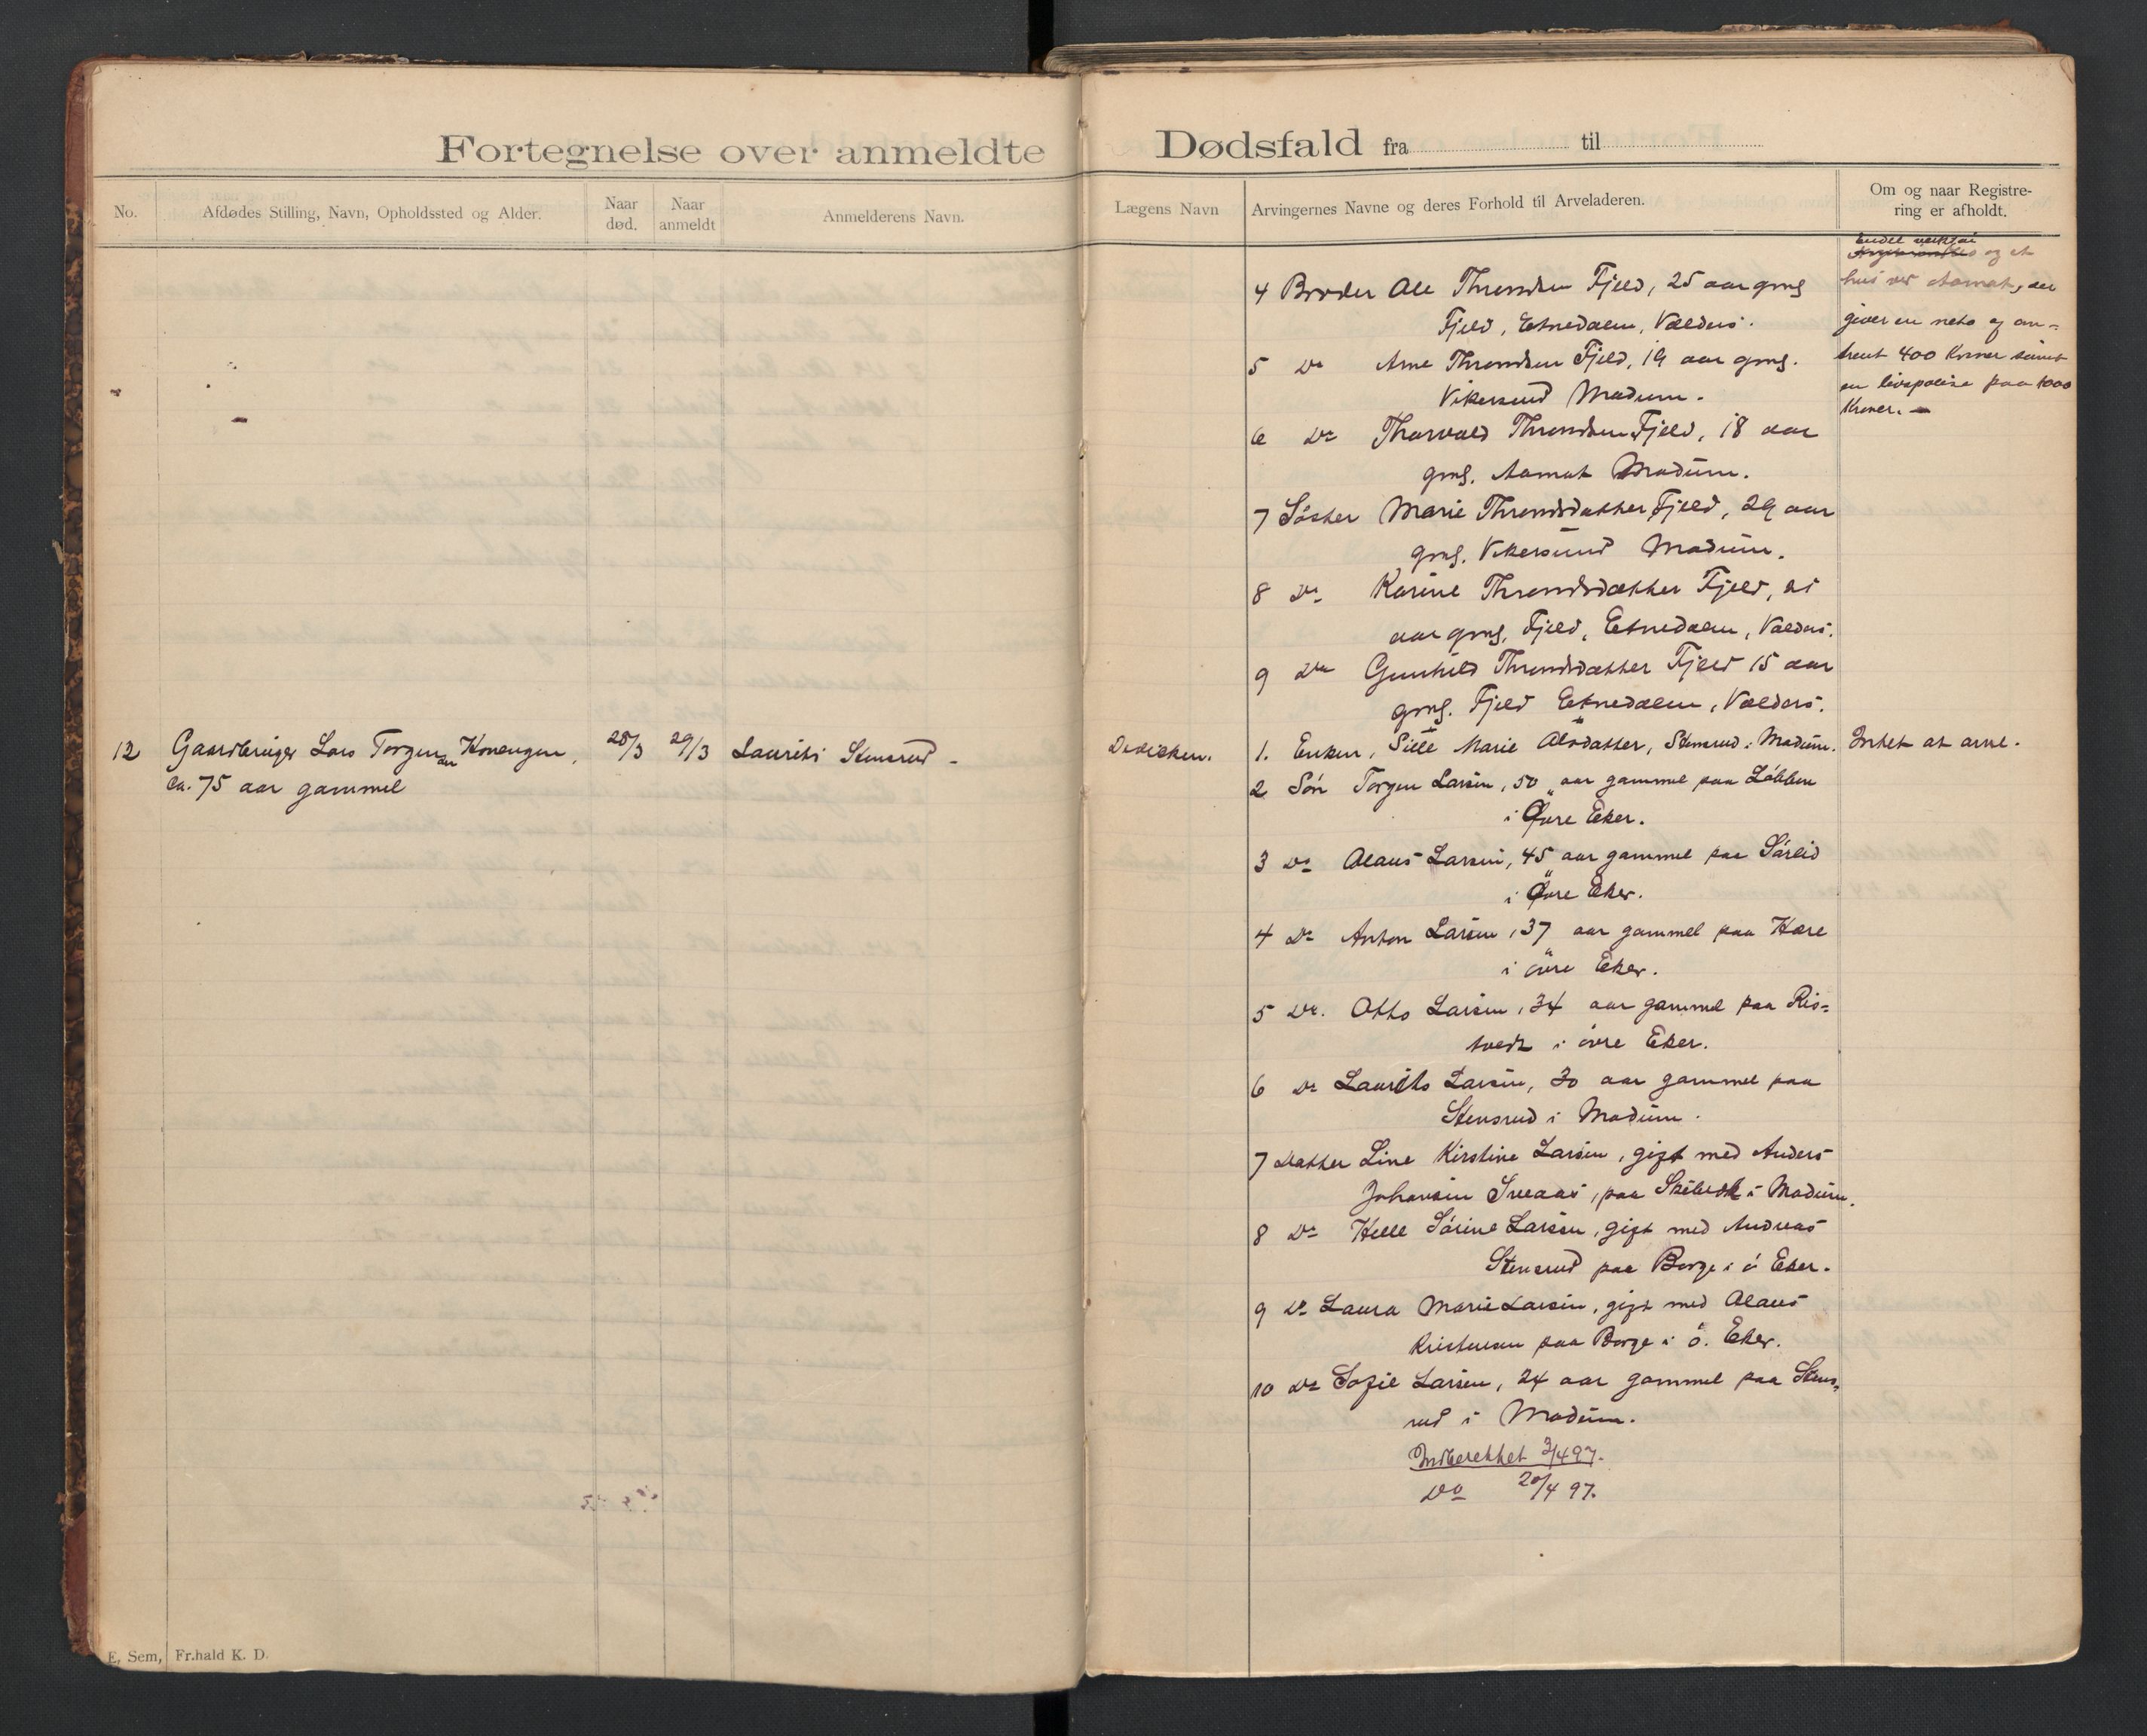 Fortegnelse over anmeldte Dødsfald fra til
No.
Afdødes Stilling, Navn, Opholdssted og Alder.
Naar død.
Naar anmeldt
Anmelderens Navn.
Lægens Navn
Arvingernes Navne og deres Forhold til Arveladeren.
Om og naar Registre-
ring er afholdt.
4 Broder Ole Thronsden Fjeld, 25 aar gml
Fjeld, Etnedalen, Valders.
5 Do Arne Thronsden Fjeld, 19 aar gml.
Vikersund Modum.
6 Do Thorvald Thronsden Fjeld, 18 aar
gml. Aamot Modum.
7 Søster Marie Throndsdatter Fjeld, 29 aar
gml. Vikersund Modum.
8 Do Karine Throndsdatter Fjeld, 21
aar gml. Fjeld, Etnedalen, Valders.
9 Do Gunhild Throndsdatter Fjeld 15 aar
gml. Fjeld Etnedalen, Valders.
Endel værktøi
og et
hus ved Aamot, der
giver en neto af om-
trent 400 Kroner samt
en livspolise paa 1000
Kroner. —
12 Gaardbruger Lars Torgersen Konengen,
ca. 75 aar gammel
28/3
29/3
Laurits Stensrud -
Dedichen.
1. Enken, Sille Marie Olsdatter, Stensrud i Modum.
Intet at arve.
2 Søn Torger Larsen, 50 aar gammel paa Løkken
i Øvre Eker.
3 Do Olaus Larsen, 45 aar gammel paa Sørlid
i Øvre Eker.
4 Do Anton Larsen, 37 aar gammel paa Hære
i øvre Eker.
5 Do. Otto Larsen, 34 aar gammel paa Ris-
tvedt i øvre Eker.
6 Do Laurits Larsen, 30 aar gammel paa
Stensrud i Modum.
7 Datter Line Kirstine Larsen, gift med Anders
Johansen Sveaas, paa i Modum.
8 Do Helle Sørine Larsen, gift med Andreas
Stensrud paa Borge i ø Eker.
9 Do Laura Marie Larsen, gift med Olaus
Kristensen paa Borge i ø. Eker.
10 Do Sofie Larsen, 24 aar gammel paa Stens-
rud i Modum.
Indberettet 3/4 97.
Do 20/4 97.
E. Sem, Fr.hald K. D.